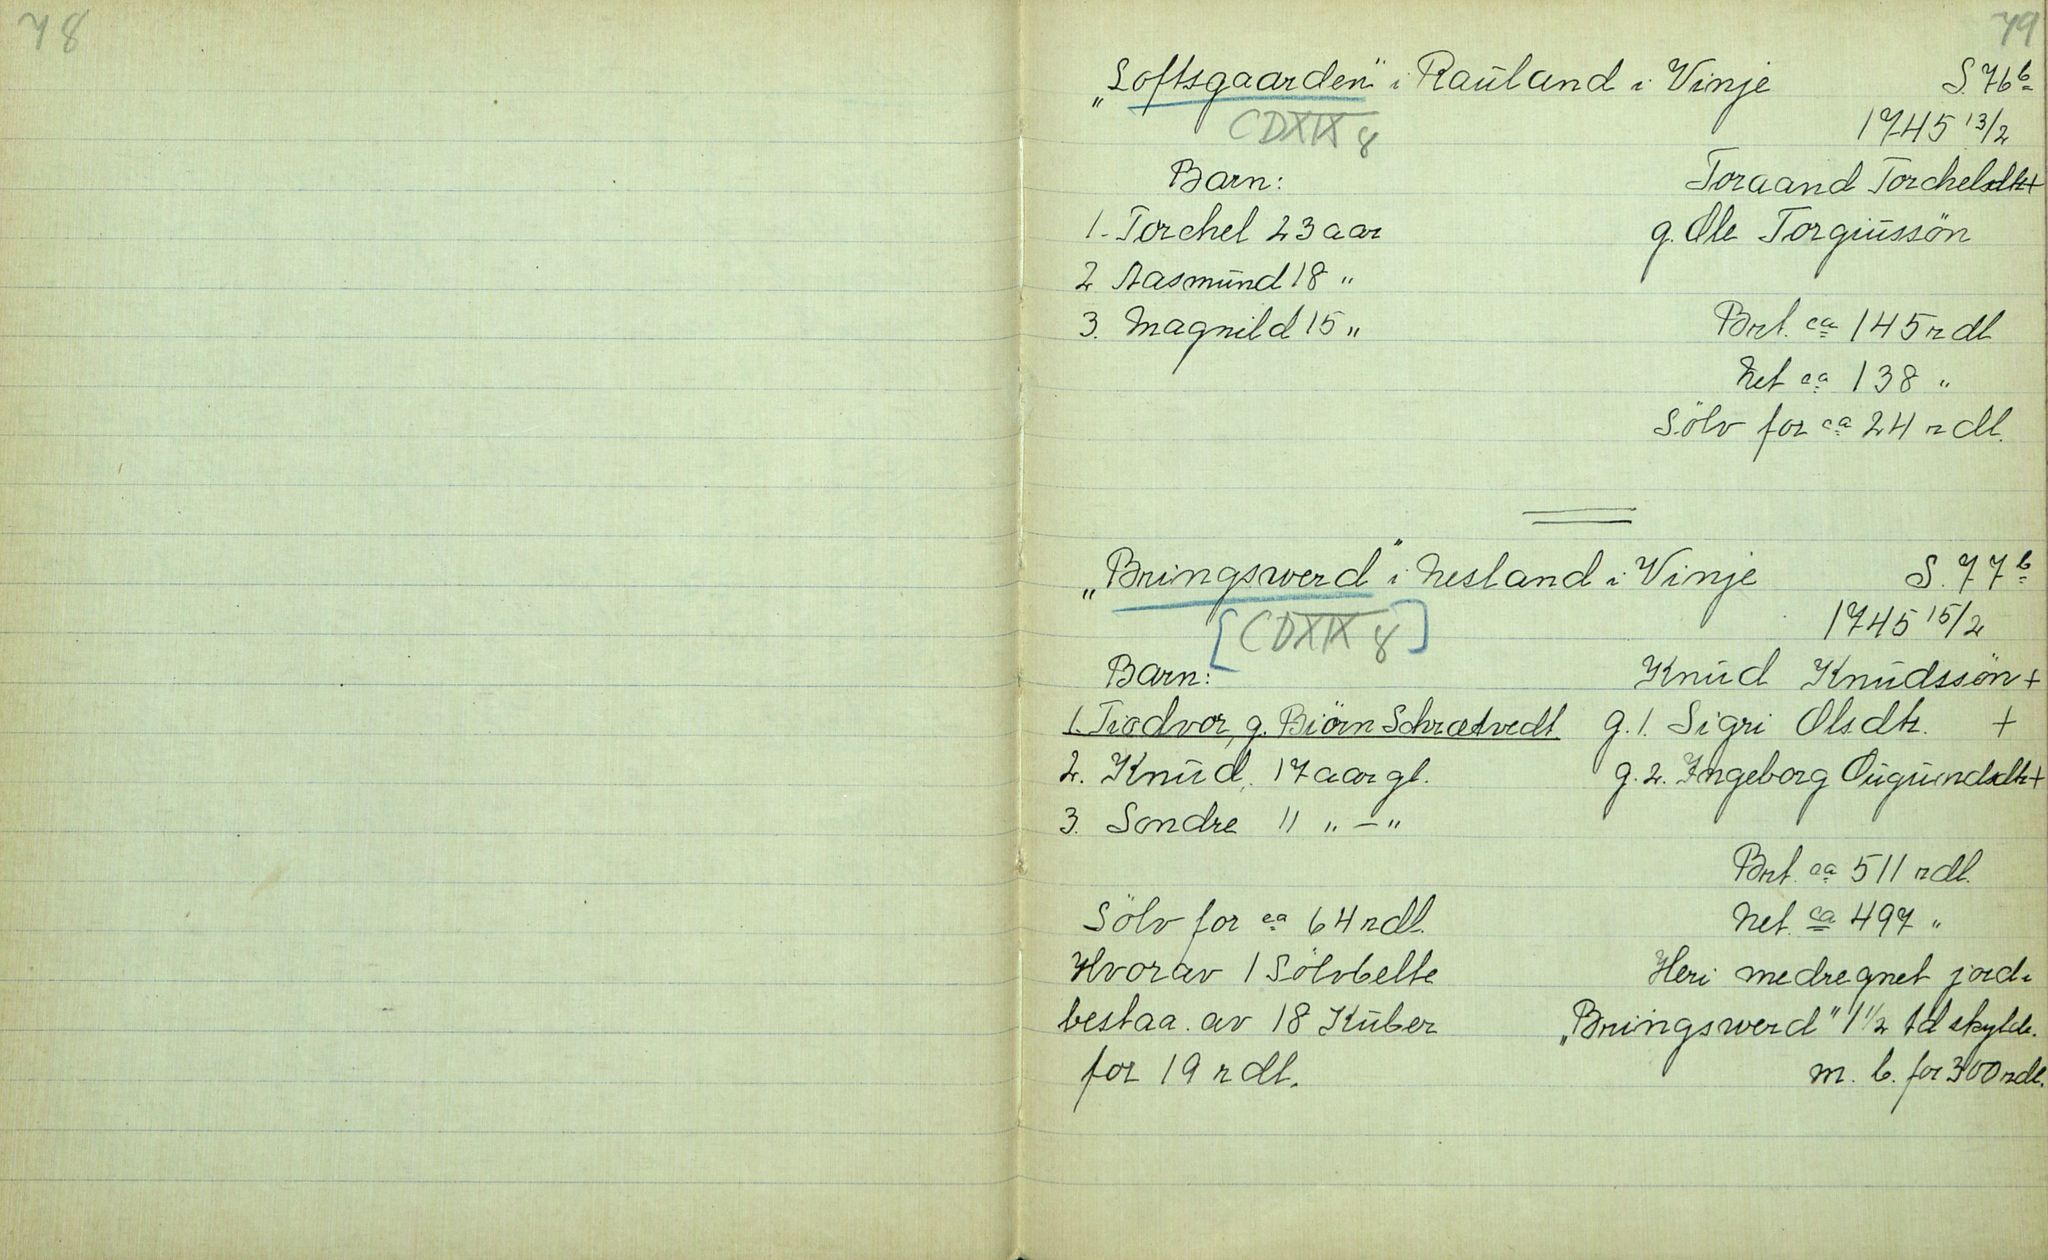 78
79
„Loftsgaarden" i Rauland i Vinje S. 76b
CDXIX 8
1745 13/2
Barn: Toraand Torchelsdtr +
1. Torchel 23 aar g. Ole Torgiussön
2 Aasmund 18 "
3. Magnild 15 " Brt. ca 145 rdl
Net ca 138 "
Sölv for ca 24 rdl.
„Bringswerd" i Nesland i Vinje S. 77b
[CDXIX 8] 1745 15/2
Barn: Knud Knudssön +
1. Tiodvor, g. Biörn Schrætvedt g. 1. Sigri Olsdtr. +
2. Knud, 17 aar gl. g. 2. Ingeborg Ougundsdtr +
3. Sondre 11 " — "
Brt. ca 511 rdl.
Sölv for ca 64 rdl. Net. ca 497 "
Hvorav 1 Sölvbelte Heri medregnet jord i
bestaa. av 18 Kuber „Bringswerd" 1 1/2 td skyld.
for 19 rdl. m. b. for 300 rdl.